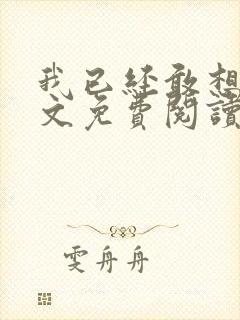 我已经敢想
文免費閱讀
雯舟舟